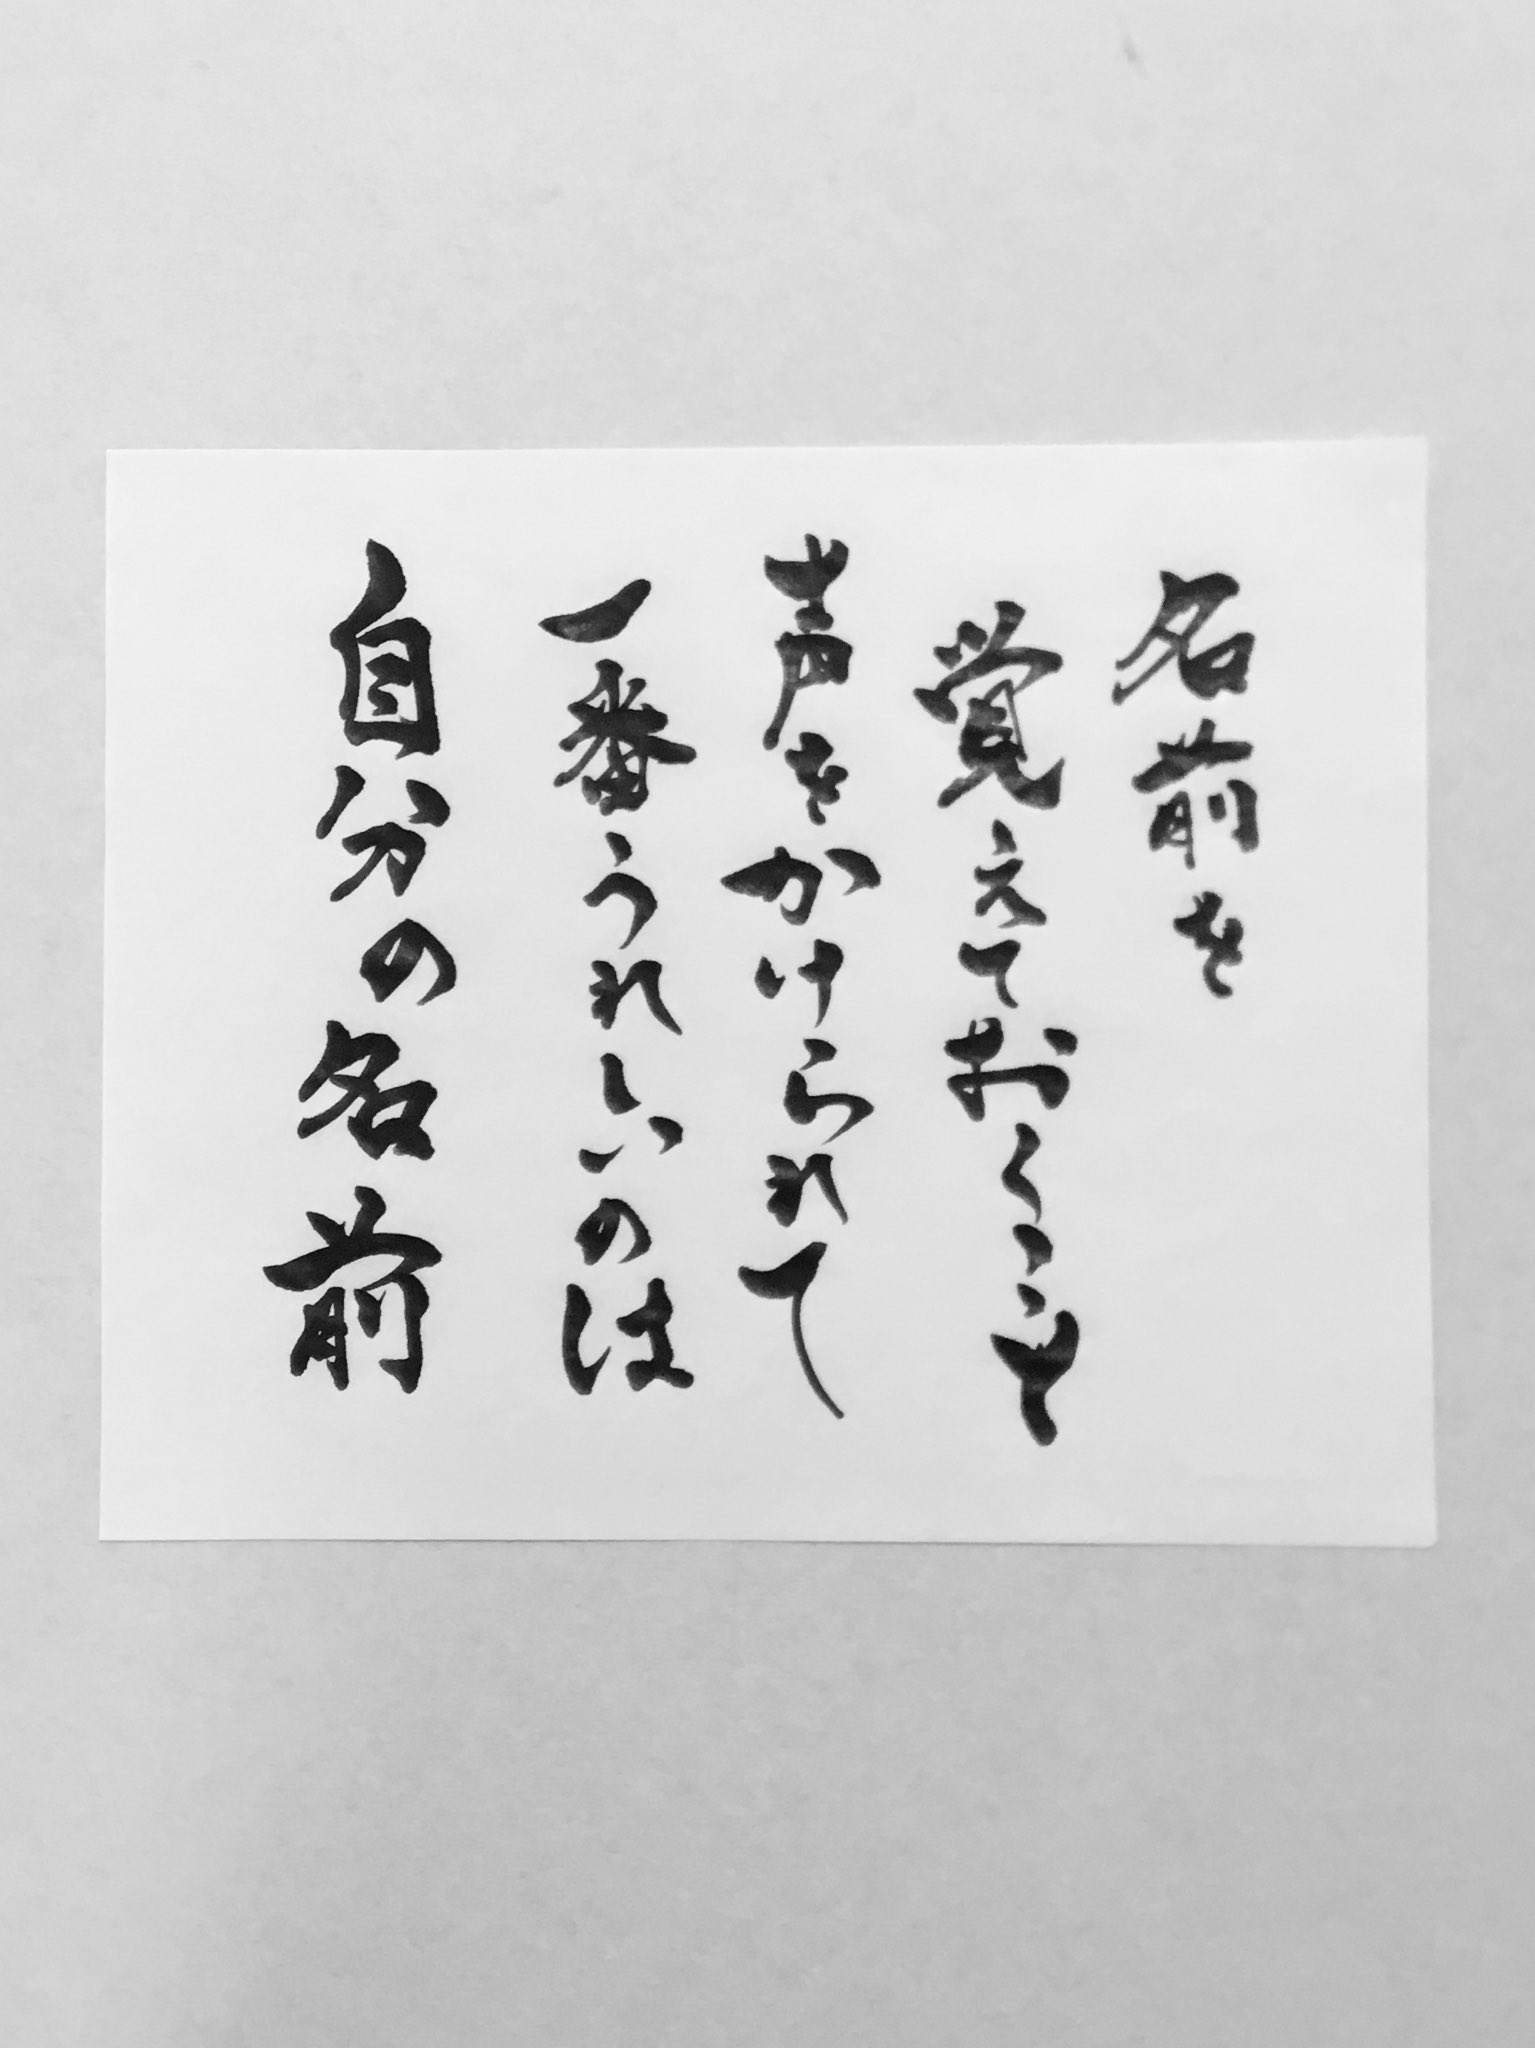 名前を
覚えておくこと
声をかけられて
一番うれしいのは
自分の名前